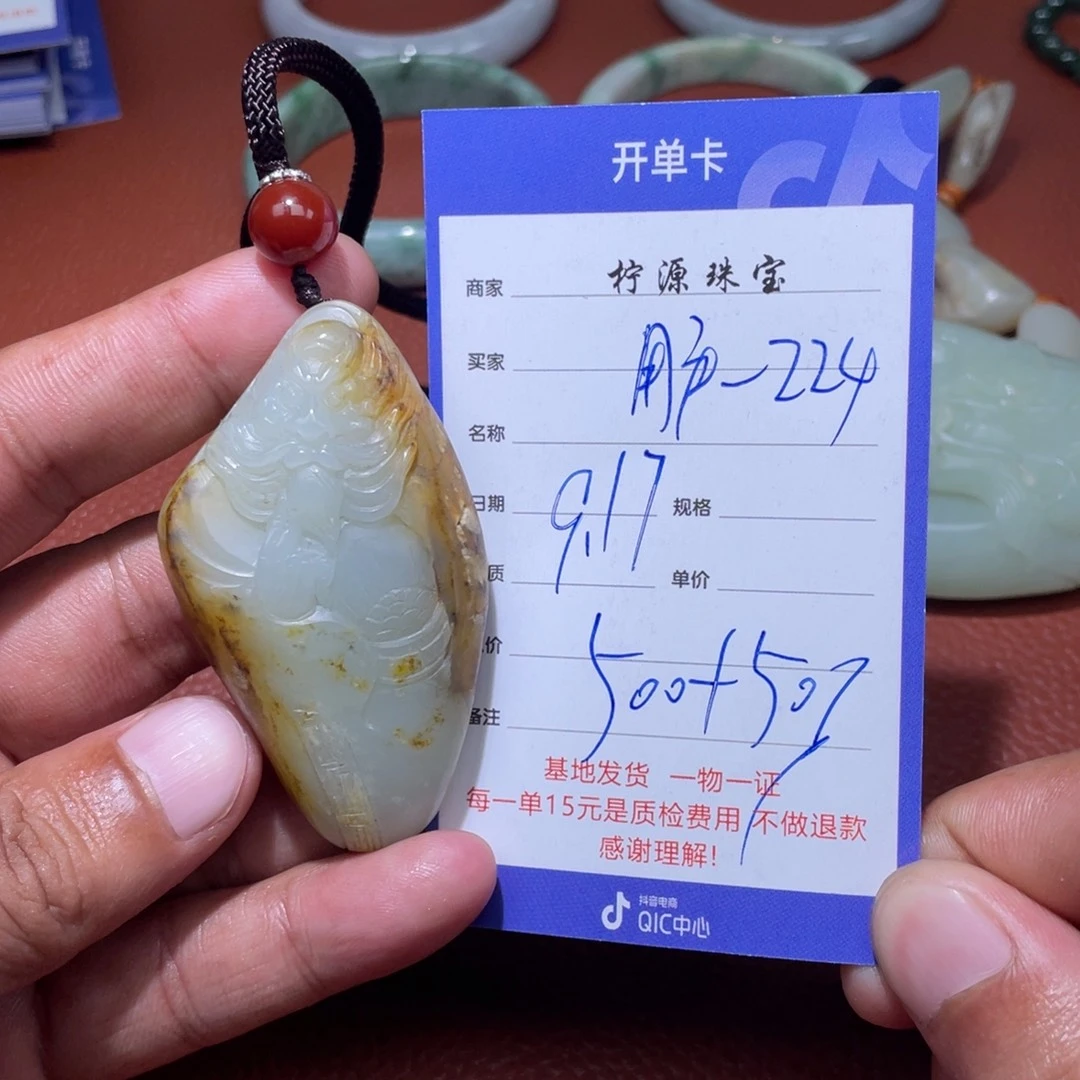 开单卡
商家 柠源珠宝
买家 用户-224
名称
日期 9.17 规格
质 单价
价 500+50
备注
基地发货 一物一证
每一单15元是质检费用 不做退款
感谢理解!
抖音电商
QIC中心